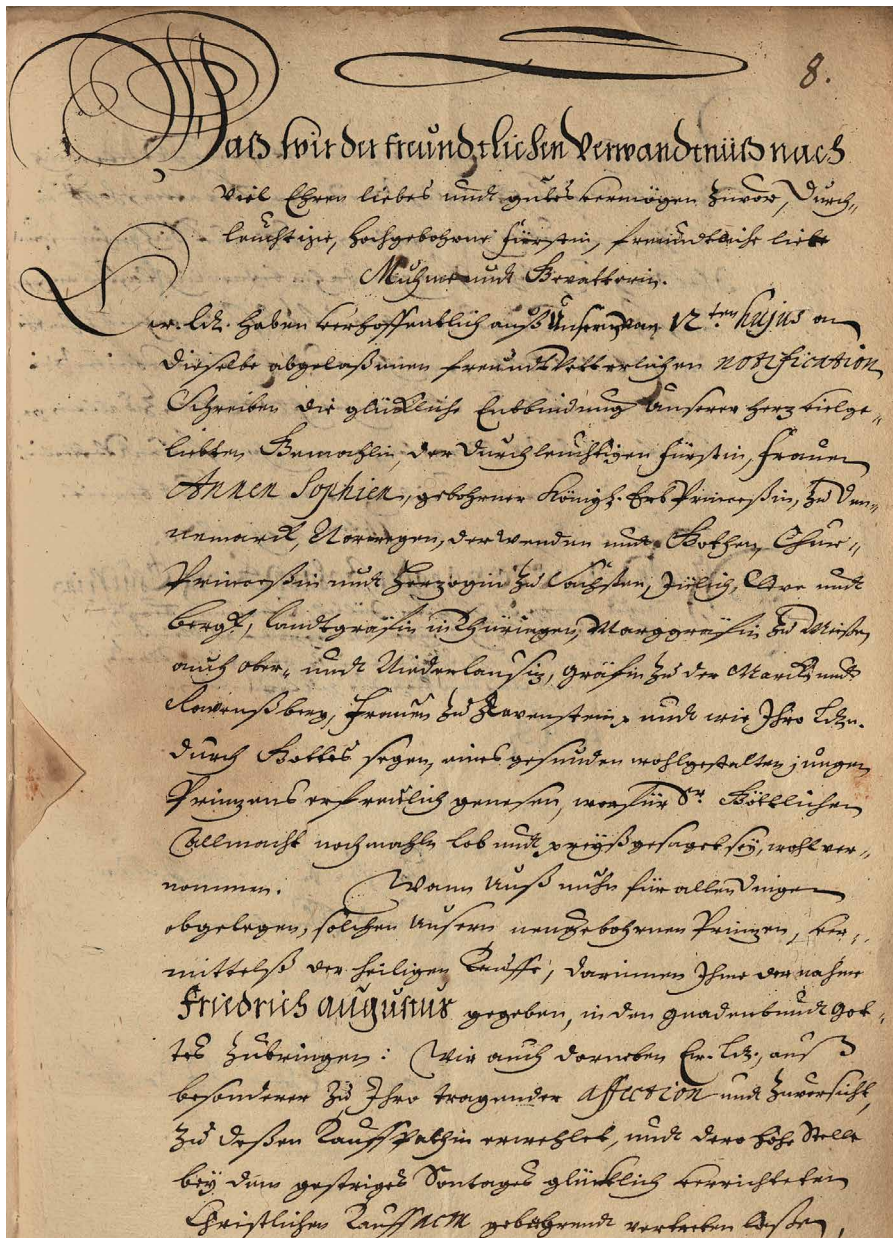 8.
Waß wir der freundtlichen Verwandtnüß nach
viel Ehren liebes undt gutes vermögen zuvor, Durch„
leuchtige, hochgebohrne Fürstin, freundtliche liebe
Muhme undt Gevatterin.
Ew. Ld. haben verhoffentlich auß Unserm vom 12ten hujus an
dieselbe abgelaßenen freundtVetterlichen notification
Schreiben die glückliche Entbindung Unserer herz vielge„
liebten Gemahlin, der Durchleuchtigen Fürstin, Frauen
Annen Sophien, gebohrner Königl. Erb Princeßin, zu Den„
nemarck, Norwegen, der Wenden undt Gothen, Chur„
Princeßin undt Herzogin zu Sachßen, Jülich, Cleve undt
Bergk, Landtgräfin in Thüringen, Marggräfin zu Meißen,
auch Ober„ undt Niederlausiz, Gräfin zu der Marck undt
Ravenßberg, Frauen zu Ravenstein, undt wie Ihro Ldn.
durch Gottes segen, eines gesunden wohlgestalten jungen
Prinzens erfreulich genesen, worfür Sr. Göttlichen
Allmacht nochmahln lob undt preyß gesaget sey, wohl ver„
nommen. Wann Unß nuhn für allen Dingen
obgelegen, solchen Unsern neugebohrnen Prinzen, ver„
mittelß der heiligen Tauffe, darinnen Ihme der nahme
Friedrich Augustus gegeben, in den gnadenbundt Got„
tes zubringen: Wir auch darneben Ew. Ld., auß
besonderer zu Ihro tragender affection undt zuversicht,
zu deßen Tauffpathin erwehlet, undt dero hohe Stelle
bey dem gestriges Sontages glücklich verrichteten
Christlichen Tauffactu gebührendt vertreten laßen,